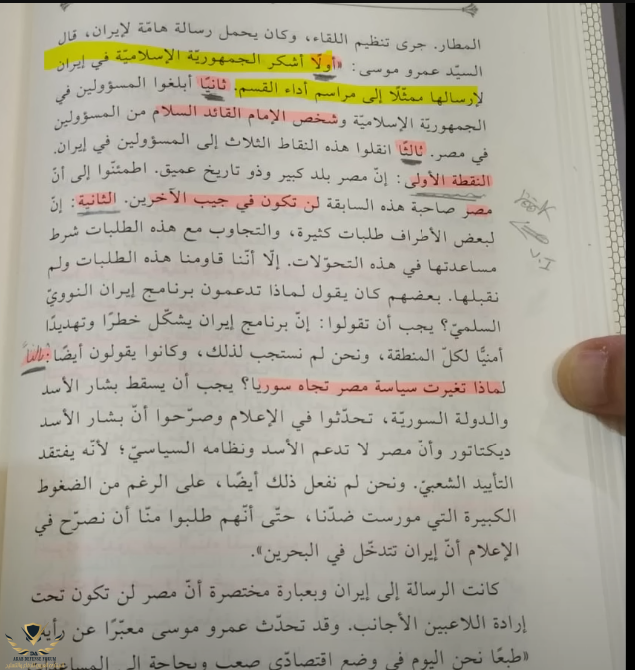 المطار. جرى تنظيم اللقاء، وكان يحمل رسالة هامّة لإيران، قال
السيّد عمرو موسى: «أولًا أشكر الجمهوريّة الإسلاميّة في إيران
لإرسالها ممثّلًا إلى مراسم أداء القسم. ثانيًا أبلغوا المسؤولين في
الجمهوريّة الإسلاميّة وشخص الإمام القائد السلام من المسؤولين
في مصر. ثالثًا انقلوا هذه النقاط الثلاث إلى المسؤولين في إيران.
النقطة الأولى: إنّ مصر بلد كبير وذو تاريخ عميق. اطمئنّوا إلى أنّ
مصر صاحبة هذه السابقة لن تكون في جيب الآخرين. الثانية: إنّ
لبعض الأطراف طلبات كثيرة، والتجاوب مع هذه الطلبات شرط
مساعدتها في هذه التحوّلات. إلّا أنّنا قاومنا هذه الطلبات ولم
نقبلها. بعضهم كان يقول لماذا تدعمون برنامج إيران النوويّ
السلميّ؟ يجب أن تقولوا: إنّ برنامج إيران يشكّل خطرًا وتهديدًا
أمنيًّا لكلّ المنطقة، ونحن لم نستجب لذلك، وكانوا يقولون أيضًا: ثالثاً
لماذا تغيرت سياسة مصر تجاه سوريا؟ يجب أن يسقط بشار الأسد
والدولة السوريّة، تحدّثوا في الإعلام وصرّحوا أنّ بشار الأسد
ديكتاتور وأنّ مصر لا تدعم الأسد ونظامه السياسيّ؛ لأنّه يفتقد
التأييد الشعبيّ. ونحن لم نفعل ذلك أيضًا، على الرغم من الضغوط
الكبيرة التي مورست ضدّنا، حتّى أنّهم طلبوا منّا أن نصرّح في
الإعلام أنّ إيران تتدخّل في البحرين».
كانت الرسالة إلى إيران وبعبارة مختصرة أنّ مصر لن تكون تحت
إرادة اللاعبين الأجانب. وقد تحدّث عمرو موسى معبّرًا عن رأيه
«طبعًا نحن اليوم في وضع اقتصاديّ صعب وبحاجة إلى
ARAB DEFENSE FORUM